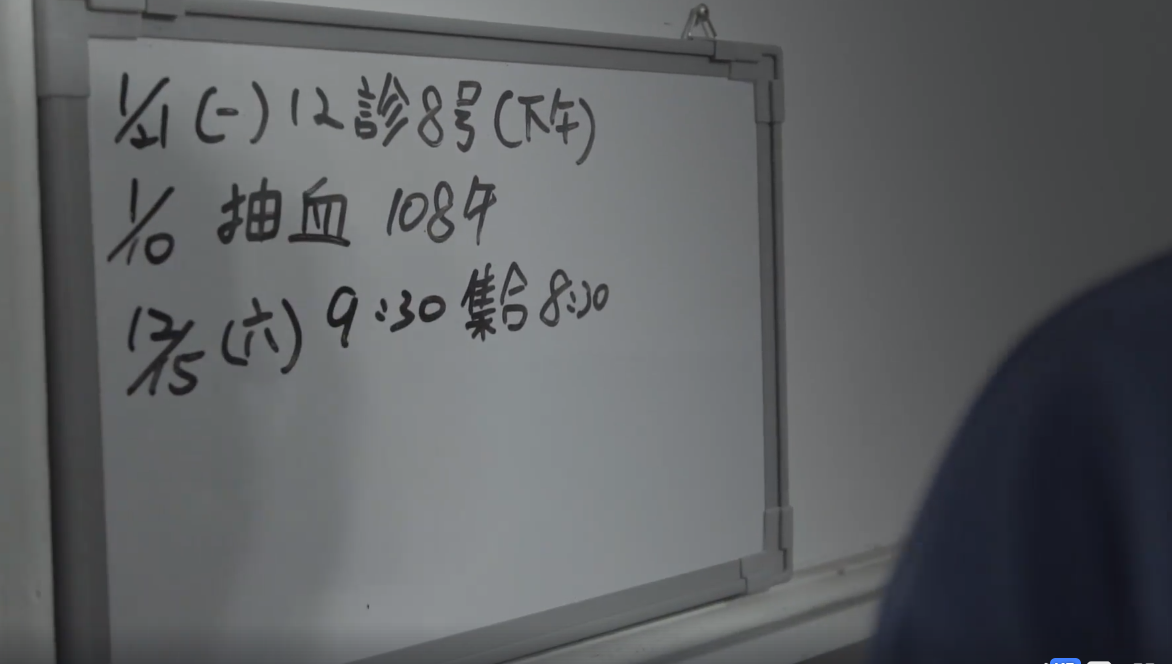 1/21 (一) 12診8号(下午)
1/10 抽血 108年
12/15 (六) 9:30 集合 8:30